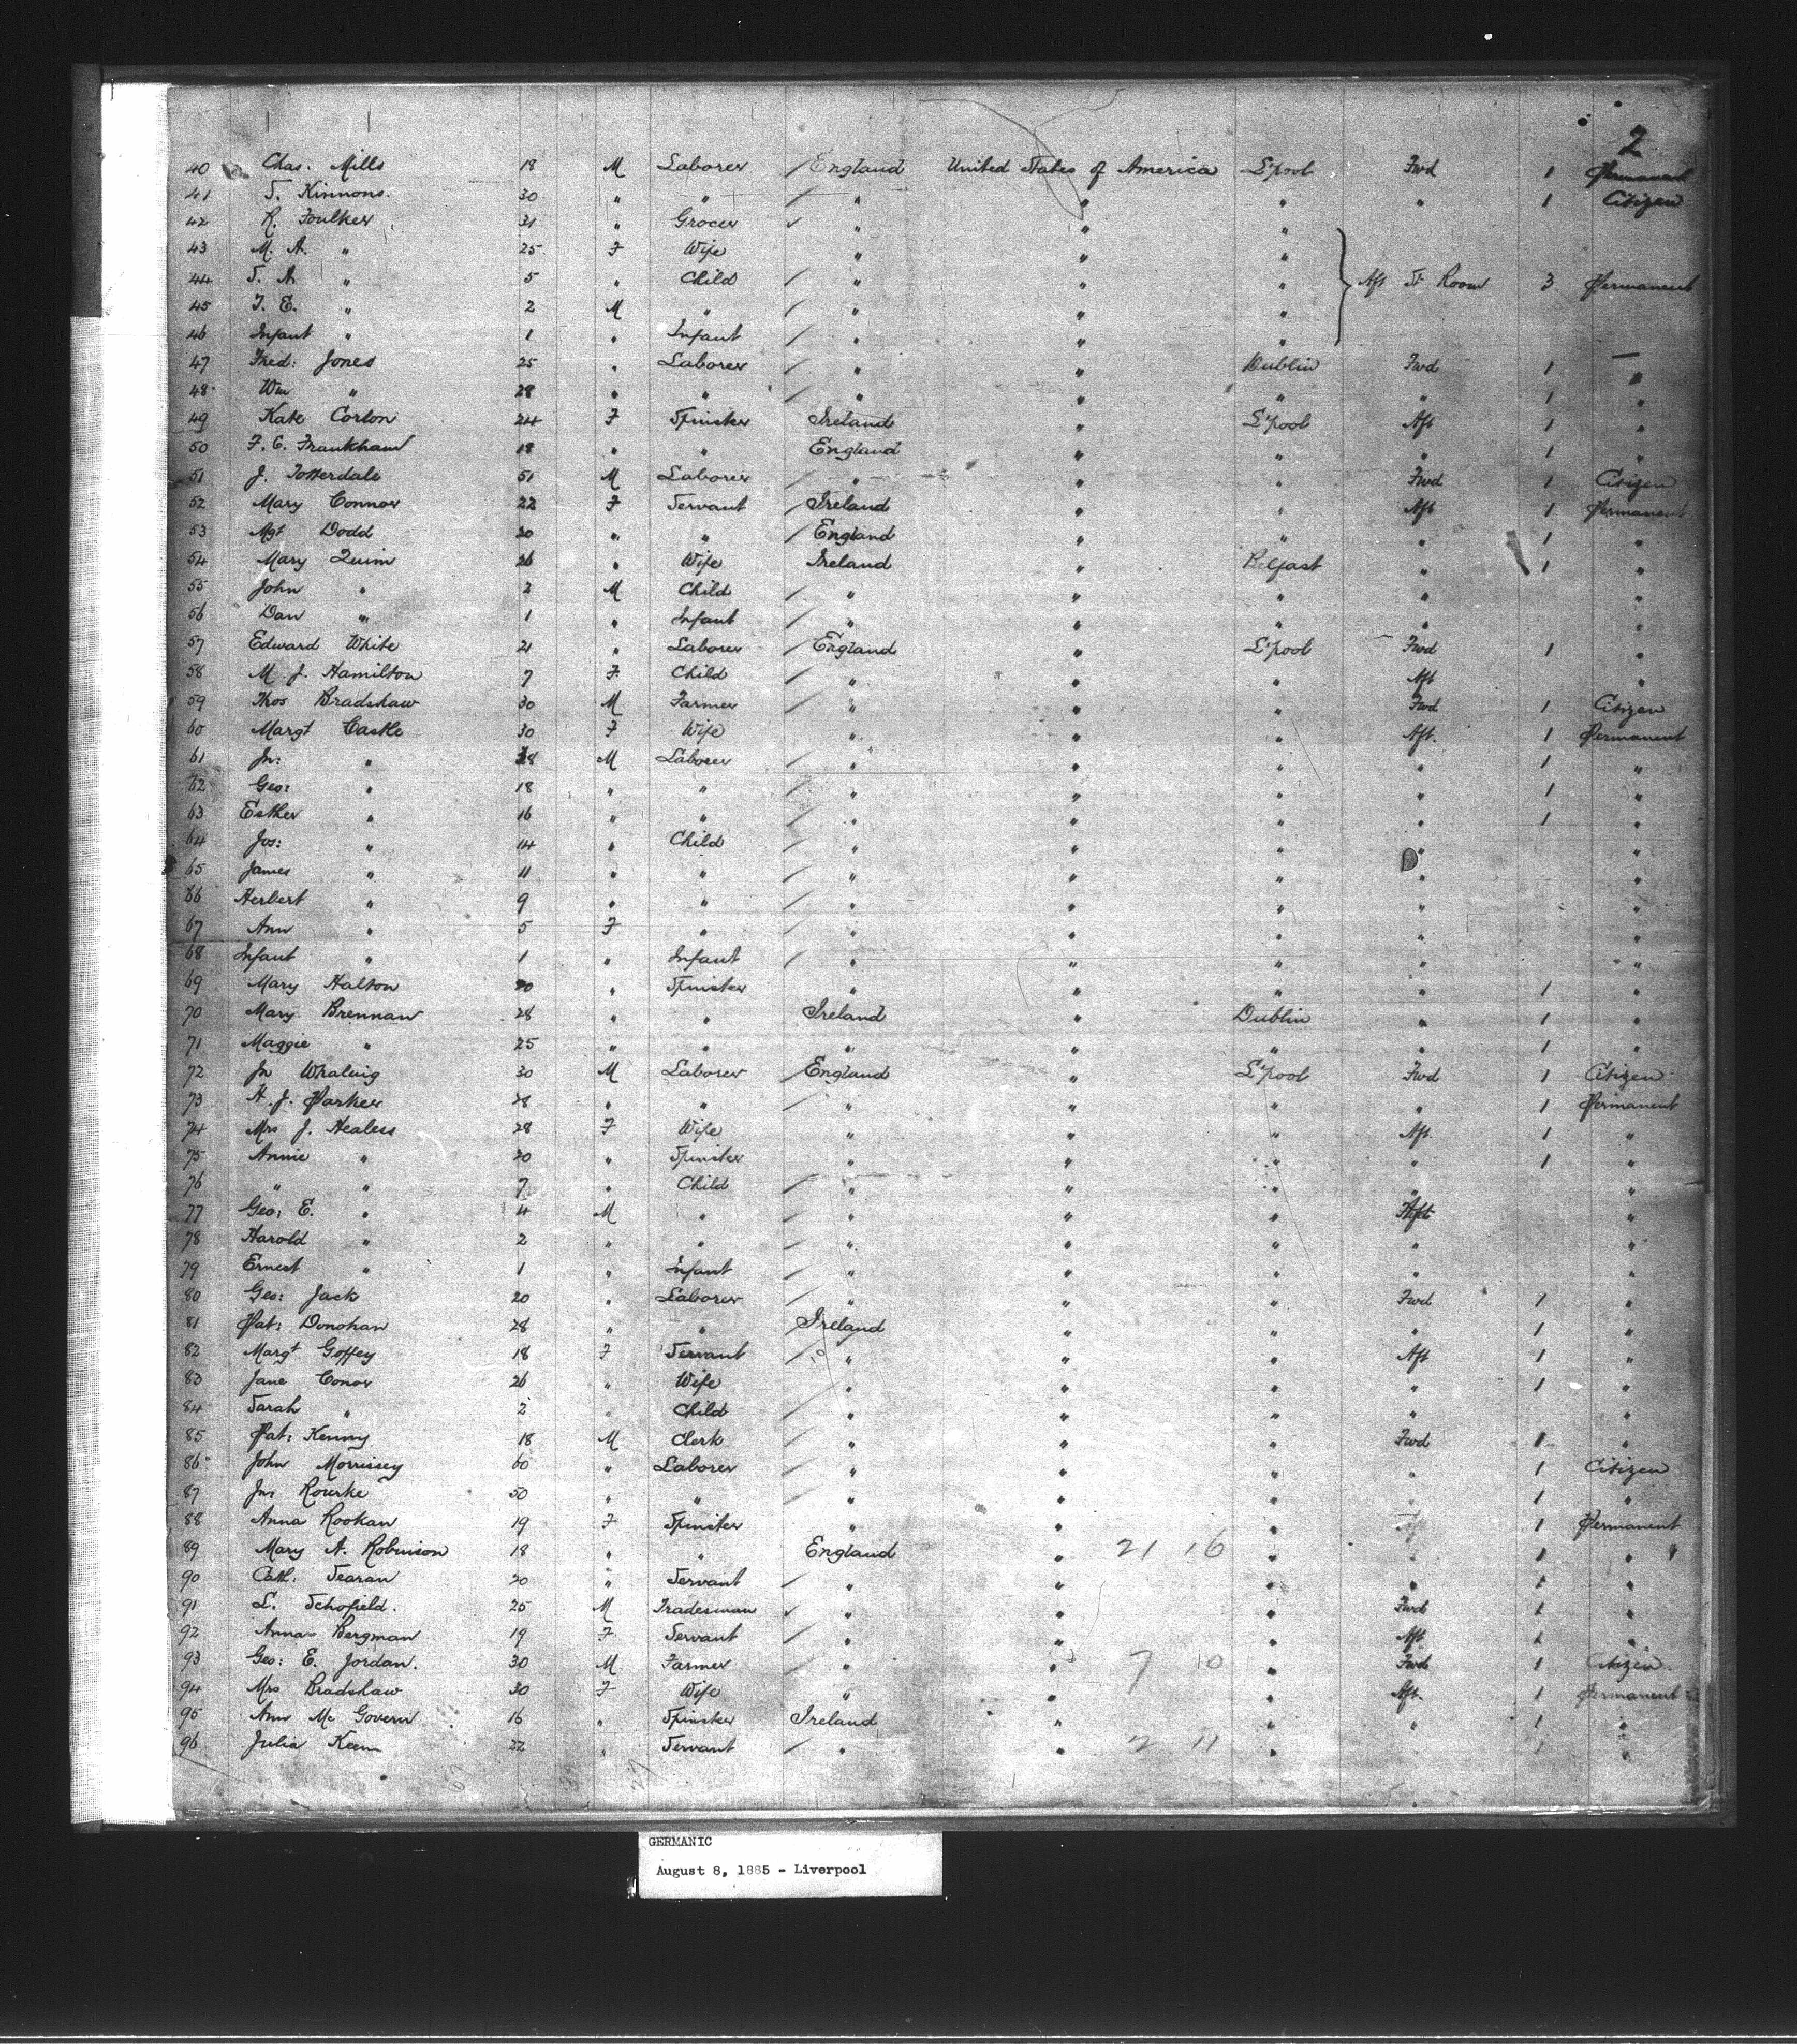 2
40 Chas. Mills 18 M Laborer England United States of America L'pool Fwd 1 Permanent
41 T. Kinnons. 30 " " " " " " 1 Citizen
42 R. Foulkes 31 " Grocer " " "
43 M. A. " 25 F Wife " " "
44 S. A. " 5 " Child " " " Aft St Room 3 Permanent
45 T. E. " 2 M " " " "
46 Infant " 1 " Infant " " "
47 Fred: Jones 25 " Laborer " " Dublin Fwd 1 "
48 Wm " 28 " " " " " " 1 "
49 Kate Corlon 24 F Spinster Ireland " L'pool Aft 1 "
50 F. E. Frankham 18 " " England " " " 1 "
51 J. Totterdale 51 M Laborer " " " Fwd 1 Citizen
52 Mary Connor 22 F Servant Ireland " " Aft 1 Permanent
53 Mgt Dodd 20 " " England " " " 1 "
54 Mary Quinn 26 " Wife Ireland " Belfast " 1 "
55 John " 2 M Child " " " " "
56 Dan " 1 " Infant " " " " "
57 Edward White 21 " Laborer England " L'pool Fwd 1 "
58 M. J. Hamilton 7 F Child " " " Aft "
59 Thos Bradshaw 30 M Farmer " " " Fwd 1 Citizen
60 Margt Caske 30 F Wife " " " Aft. 1 Permanent
61 Jn: " 18 M Laborer " " " " 1 "
62 Geo: " 18 " " " " " " 1 "
63 Esther " 16 " " " " " " 1 "
64 Jos: " 14 " Child " " " " "
65 James " 11 " " " " " " "
66 Herbert " 9 " " " " " " "
67 Ann " 5 F " " " " " "
68 Infant " 1 " Infant " " " " "
69 Mary Halton 20 " Spinster " " " " 1 "
70 Mary Brennan 28 " " Ireland " Dublin " 1 "
71 Maggie " 25 " " " " " " 1 "
72 Jn Whaluig 30 M Laborer England " L'pool Fwd 1 Citizen
73 H. J. Parker 28 " " " " " " 1 Permanent
74 Mrs J. Healess 28 F Wife " " " Aft. 1 "
75 Annie " 20 " Spinster " " " " 1 "
76 " " 7 " Child " " " " "
77 Geo: E. " 4 M " " " " Aft "
78 Harold " 2 " " " " " " "
79 Ernest " 1 " Infant " " " "
80 Geo: Jack 20 " Laborer " " " Fwd 1 "
81 Pat: Donohan 28 " " Ireland " " " 1 "
82 Margt Goffey 18 F Servant " " " Aft 1 "
83 Jane Conor 26 " Wife " " " " 1 "
84 Sarah " 2 " Child " " " " "
85 Pat: Kenny 18 M Clerk " " " Fwd 1 "
86 John Morrissey 60 " Laborer " " " " 1 Citizen
87 Jn: Rourke 50 " " " " " " 1 "
88 Anna Rookan 19 F Spinster " " " 1 Permanent
89 Mary A. Robinson 18 " " England " 21 16 " " 1 "
90 Cath. Searan 20 " Servant " " " " 1 "
91 L. Schofield. 25 M Tradesman " " " Fwd 1 "
92 Anna Bergman 19 F Servant " " " Aft 1 "
93 Geo: E. Jordan. 30 M Farmer " " 7 10 " Fwd 1 Citizen
94 Mrs Bradshaw 30 F Wife " " " Aft. 1 Permanent
95 Ann Mc Govern 16 " Spinster Ireland " " " 1 "
96 Julia Keen 22 " Servant " " 2 11 " 1 "
GERMANIC
August 8, 1885 - Liverpool